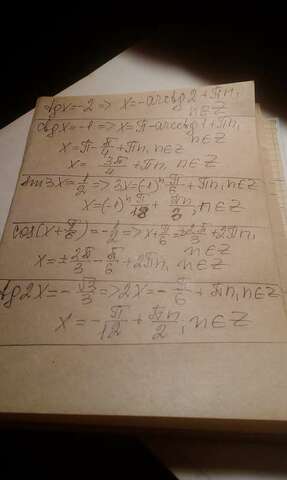 tgx=-2 => x=-arctg2+πn,
n∈Z
ctgx=-1=>x=π-arcctg1+πn,
n∈Z
x=π-π/4+πn, n∈Z
x=3π/4+πn, n∈Z
sin3x=1/2=>3x=(-1)ⁿπ/6+πn,n∈Z
x=(-1)ⁿπ/18+πn/3, n∈Z
cos(x+π/6)=-1/2=>x+π/6=±2π/3+2πn,
n∈Z
x=±2π/3-π/6+2πn, n∈Z
tg2x=-√3/3=>2x=-π/6+πn,n∈Z
x=-π/12+πn/2, n∈Z